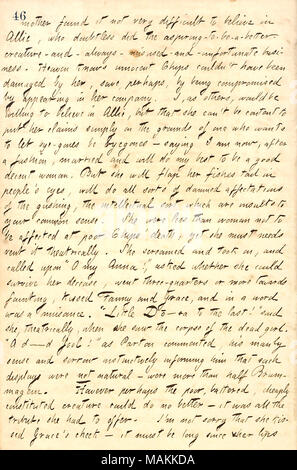 46
mother found it not very difficult to believe in
Allie, who doubtless did the aspiring-to-be-a-better
creature-and-always-misused-and-unfortunate busi-
ness. Heaven knows innocent Chips couldn't have been
damaged by her, save, perhaps, by being compromised
by appearing in her company. I, as others, would be
willing to believe in Allie, but that she can't be content to
put her claims simply on the grounds of one who wants
to let bye-gones be byegones - saying I am now, after
a fashion, married and will do my best to be a good
decent woman. But she will flap her fishes tail in
people's eyes, will do all sorts of damned affectations
of the gushing, the intellectual sort which are insults to
your common sense. She were less than woman not to
be affected at poor Chips' death, yet she must needs
vent it theatrically. She screamed and took on, and
called upon "O my Anna!", asked whether she could
survive her decease - went three-quarters or more towards
fainting, kissed Fanny and Grace, and in a word
was a nuisance. "Little Do-ra to the last!" said
she, theatrically, when she saw the corpse of the dead girl.
"O d—d fool!" as Parton commented, his manly
sense and sorrow instinctively informing him that such
displays were not natural - were more than half Brum-
magem. However perhaps the poor, battered, cheaply
constituted creature could do no better - it was all the
tribute she had to offer. I'm not sorry that she kis-
sed Grace's cheek - it must be long since her lips
alamy
Image ID: MAKKDA
www.alamy.com